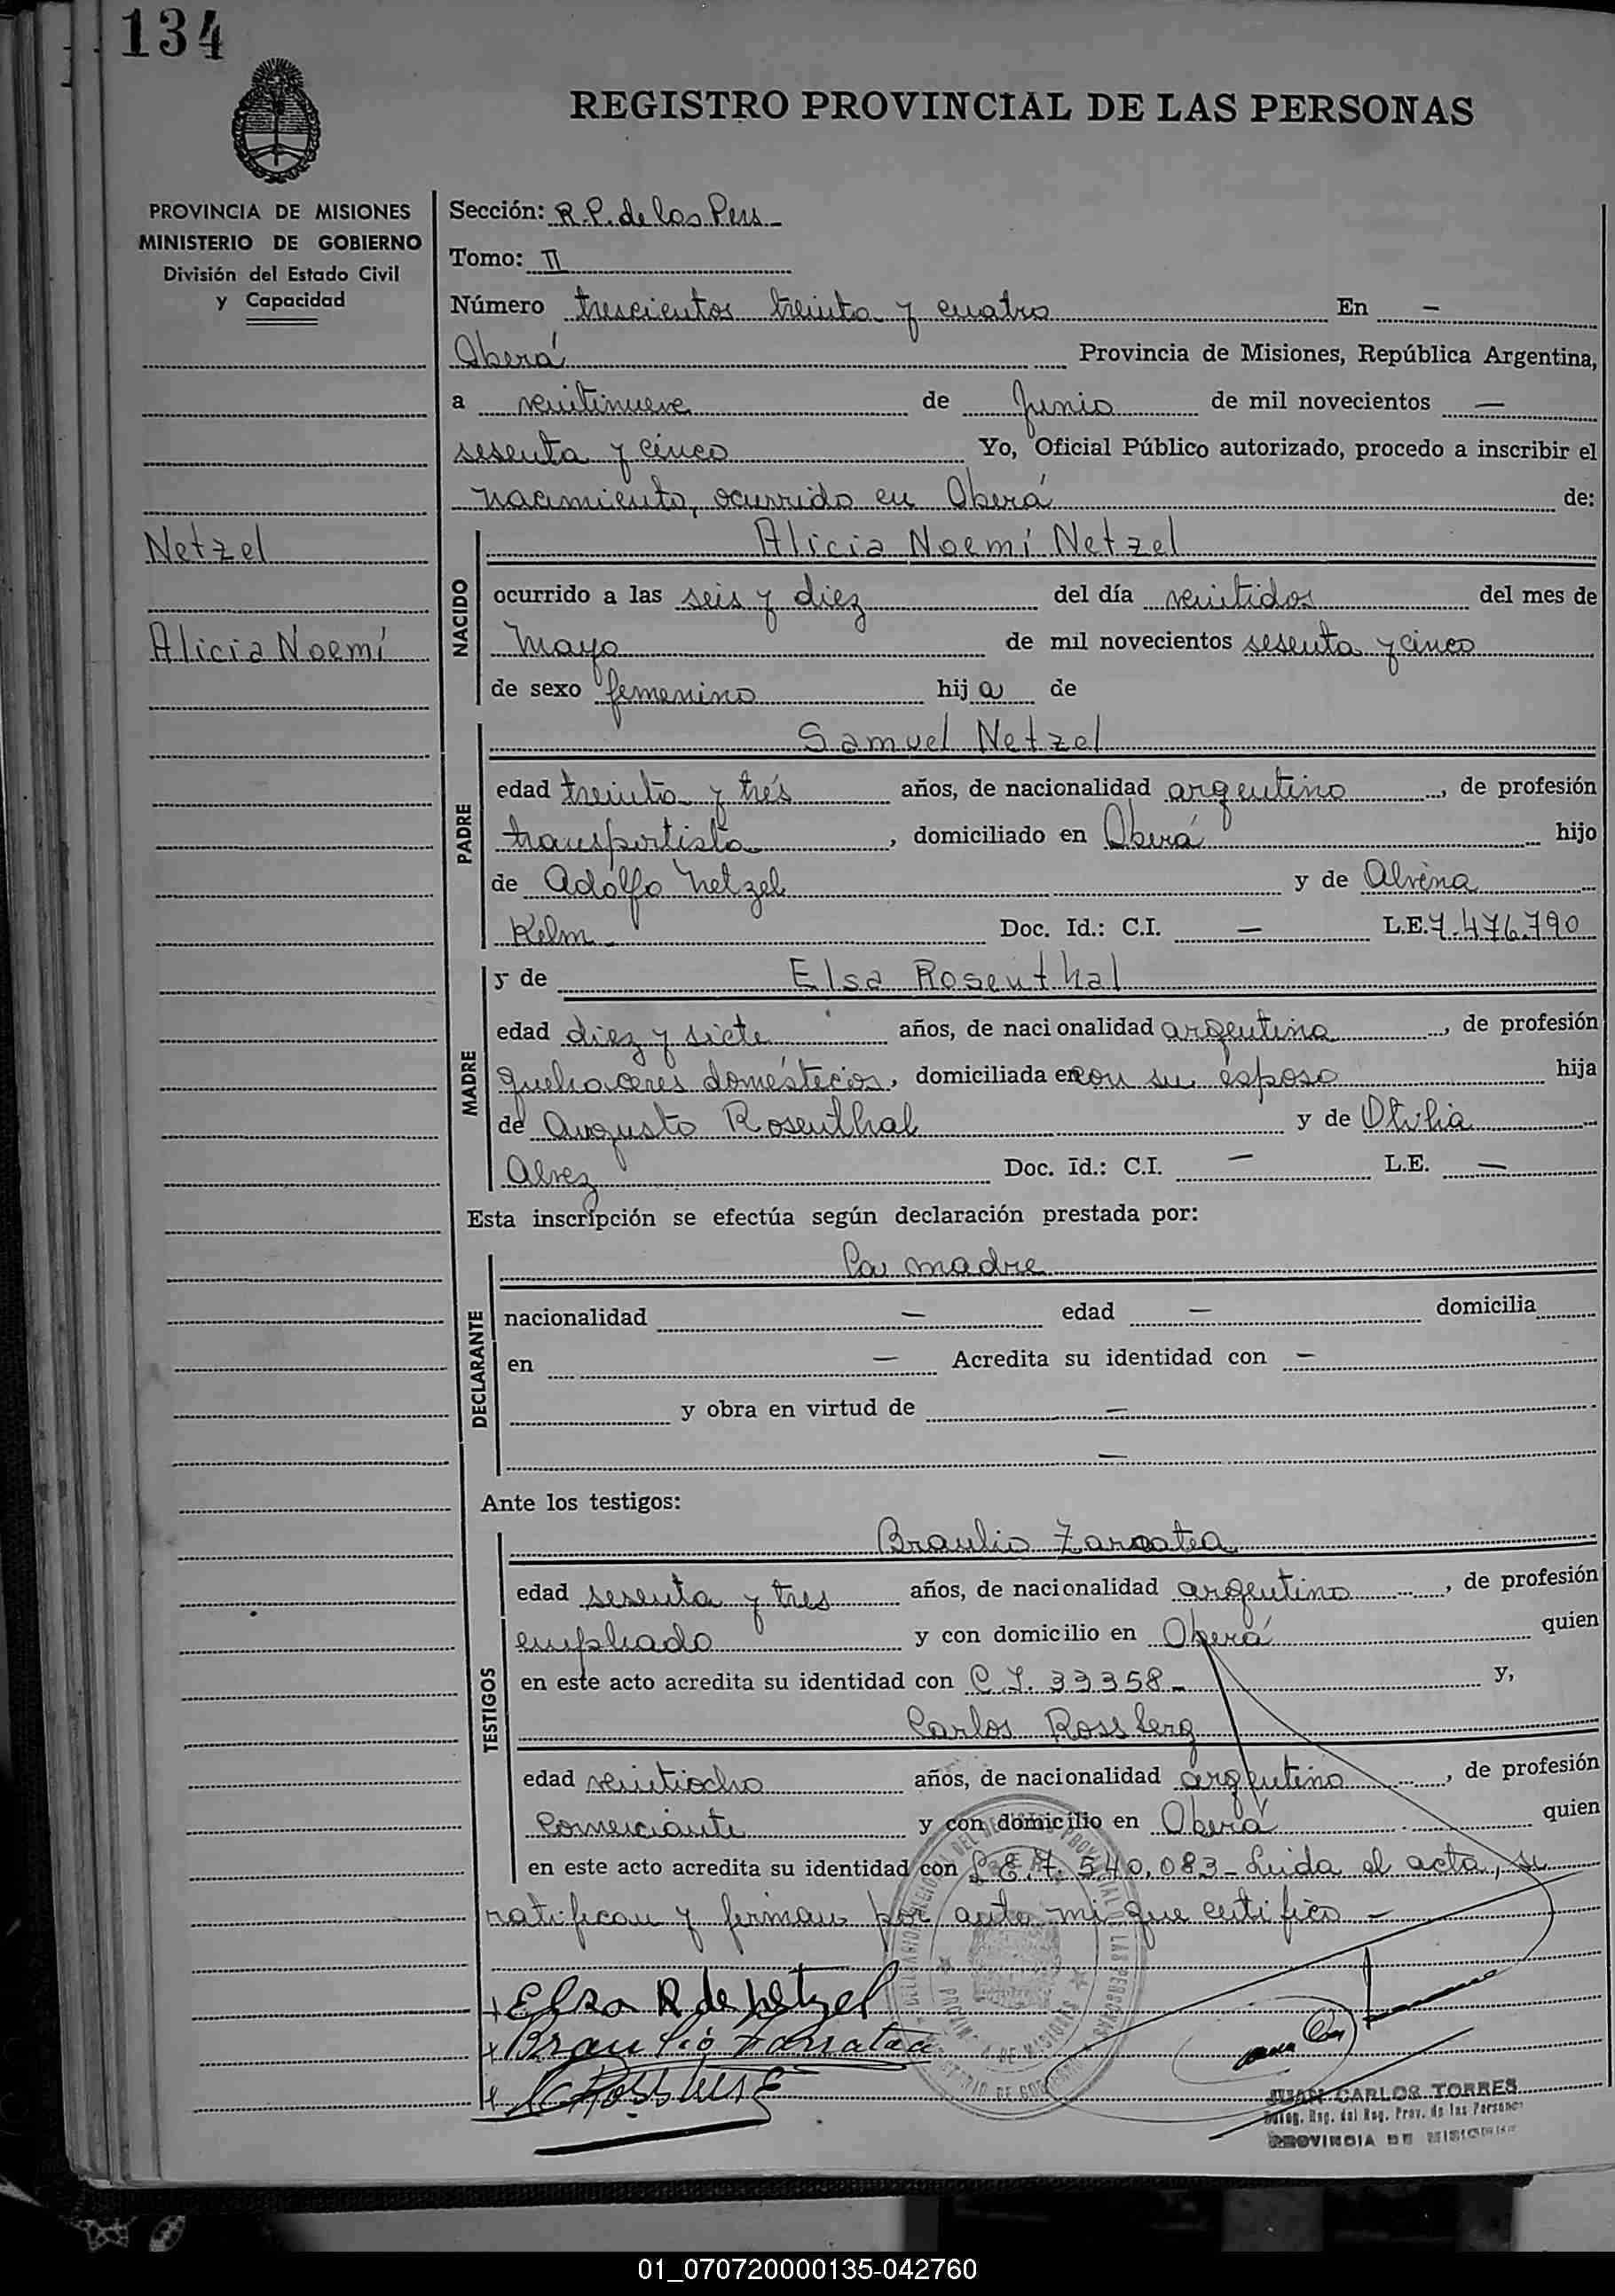 134
REGISTRO PROVINCIAL DE LAS PERSONAS
PROVINCIA DE MISIONES
MINISTERIO DE GOBIERNO
División del Estado Civil
y Capacidad
Netzel
Alicia Noemí
Sección: R.P. de las Pers
Tomo: II
Número trescientos treinta y cuatro En —
Oberá Provincia de Misiones, República Argentina,
a veintinueve de Junio de mil novecientos —
sesenta y cinco Yo, Oficial Público autorizado, procedo a inscribir el
nacimiento, ocurrido en Oberá de:
NACIDO
Alicia Noemí Netzel
ocurrido a las seis y diez del día veintidos del mes de
Mayo de mil novecientos sesenta y cinco
de sexo femenino hij a de
PADRE
Samuel Netzel
edad treinta y trés años, de nacionalidad argentino, de profesión
transportista, domiciliado en Oberá hijo
de Adolfo Netzel y de Alvina
Kelm Doc. Id.: C.I. — L.E. 7.476.790
MADRE
y de Elsa Rosenthal
edad diez y siete años, de nacionalidad argentina, de profesión
quehaceres domésticos, domiciliada en con su esposo hija
de Augusto Rosenthal y de Otilia
Alvez Doc. Id.: C.I. — L.E. —
Esta inscripción se efectúa según declaración prestada por:
DECLARANTE
La madre
nacionalidad — edad — domicilia
en — Acredita su identidad con —
y obra en virtud de —
—
Ante los testigos:
TESTIGOS
Braulio
edad sesenta y tres años, de nacionalidad argentino, de profesión
empleado y con domicilio en Oberá quien
en este acto acredita su identidad con C.I. 33358 - y,
Carlos Rossberg
edad veintiocho años, de nacionalidad argentino, de profesión
Comerciante y con domicilio en Oberá quien
en este acto acredita su identidad con L.E. 7.540.083 - Leida el acta, se
ratifican y firman por ante mi que certifico -
Elsa R de Netzel
Braulio
C Rossberg
JUAN CARLOS TORRES
Deleg. Reg. del Reg. Prov. de las Personas
PROVINCIA DE MISIONES
01_070720000135-042760